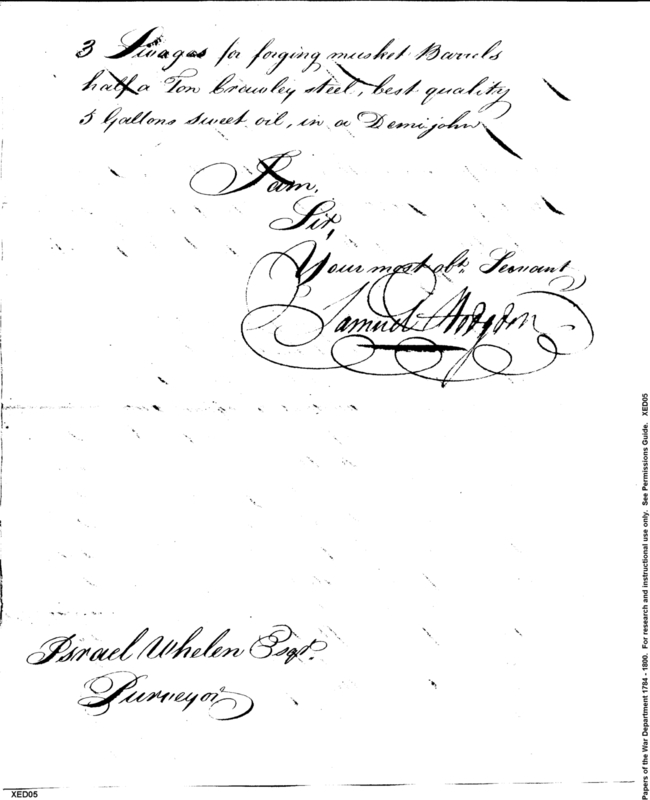 3 Swages for forging musket Barrels
half a Ton Crawley steel, best quality
5 Gallons sweet oil, in a Demijohn
I am,
Sir,
Your most obt. Servant
Samuel Hodgdon
Israel Whelen Esqr.
Purveyor
XED05
Papers of the War Department 1784 - 1800. For research and instructional use only. See Permissions Guide. XED05